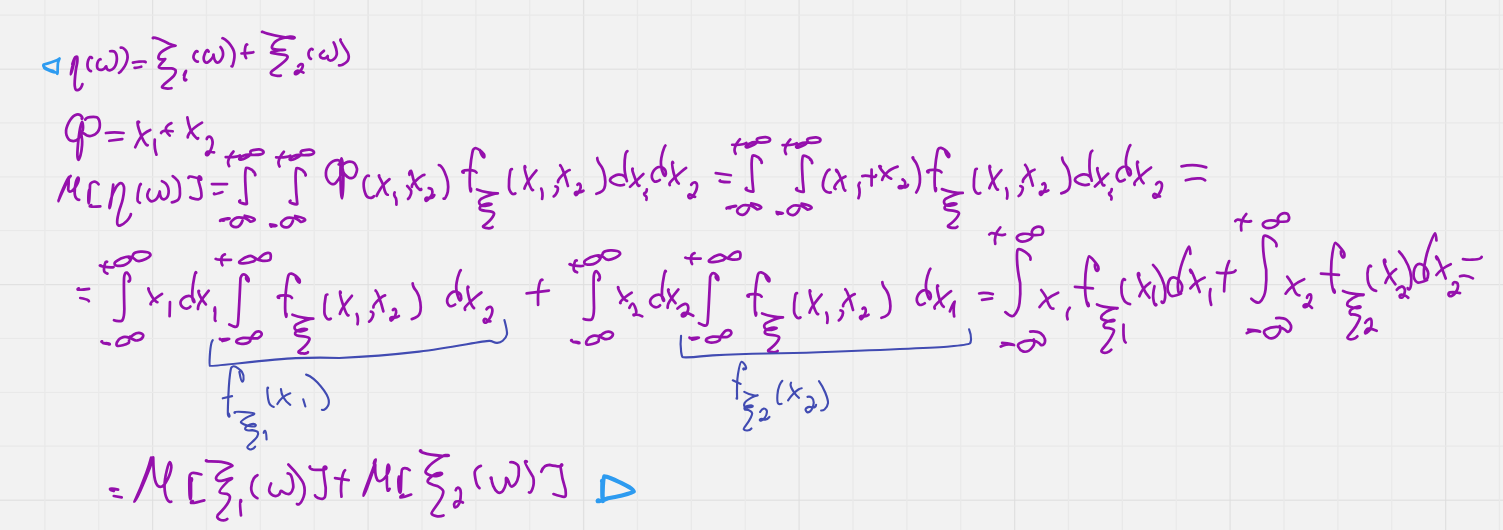 ◁ η(ω) = ξ₁(ω) + ξ₂(ω)
φ = x₁ + x₂
M[η(ω)] = ∫_{-∞}^{+∞} ∫_{-∞}^{+∞} φ(x₁,x₂) f_ξ(x₁,x₂)dx₁dx₂ = ∫_{-∞}^{+∞} ∫_{-∞}^{+∞} (x₁+x₂) f_ξ(x₁,x₂)dx₁dx₂ =
= ∫_{-∞}^{+∞} x₁dx₁ ∫_{-∞}^{+∞} f_ξ(x₁,x₂) dx₂ + ∫_{-∞}^{+∞} x₂dx₂ ∫_{-∞}^{+∞} f_ξ(x₁,x₂) dx₁ = ∫_{-∞}^{+∞} x₁ f_{ξ₁}(x₁)dx₁ + ∫_{-∞}^{+∞} x₂ f_{ξ₂}(x₂)dx₂ =
f_{ξ₁}(x₁) f_{ξ₂}(x₂)
= M[ξ₁(ω)] + M[ξ₂(ω)] ▷